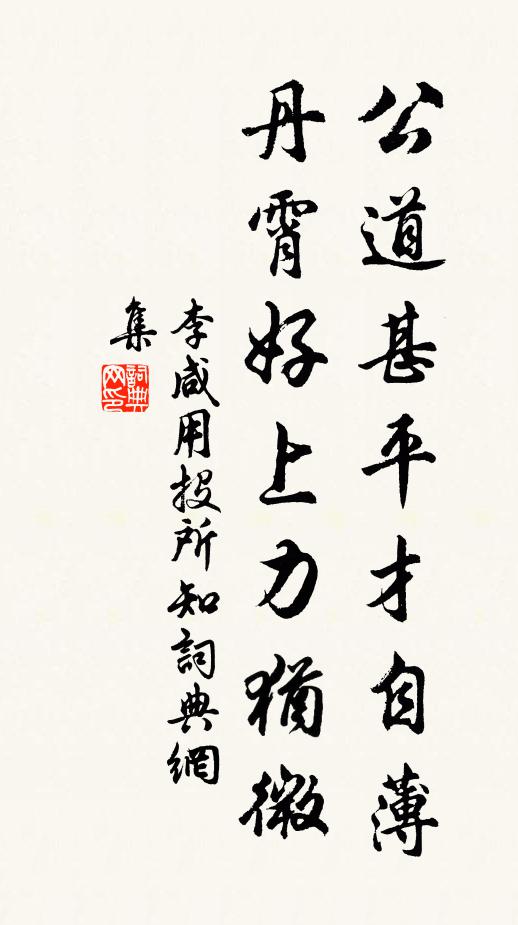 公道甚平才自薄
丹霄好上力猶微
李咸用投所知詞典網
集
詞典網印